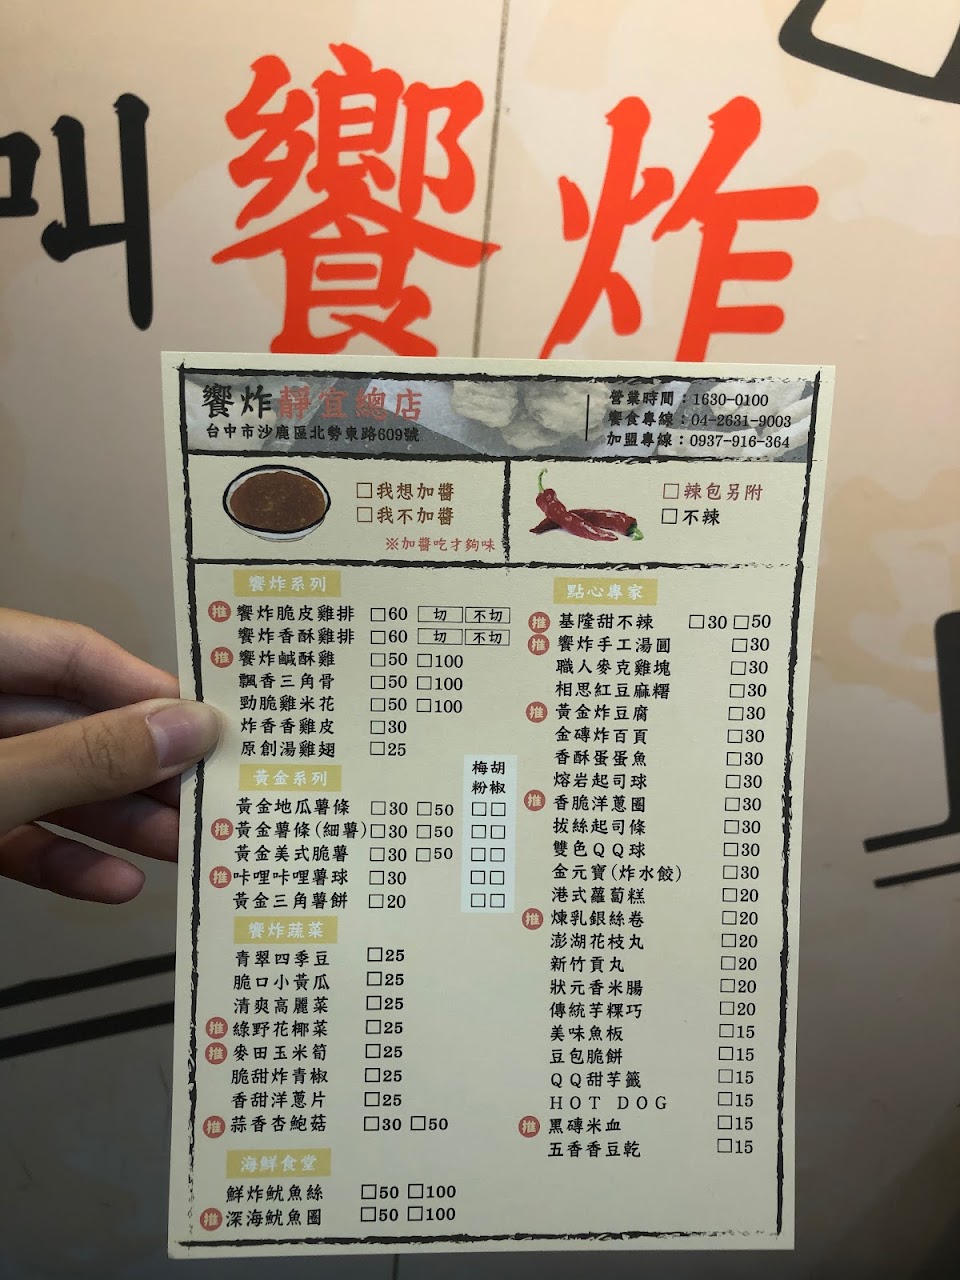 叫
饗炸
饗炸靜宜總店
台中市沙鹿區北勢東路609號
營業時間：1630-0100
饗食專線：04-2631-9003
加盟專線：0937-916-364
□我想加醬
□我不加醬
※加醬吃才夠味
□辣包另附
□不辣
饗炸系列
推 饗炸脆皮雞排 □60 切 不切
饗炸香酥雞排 □60 切 不切
推 饗炸鹹酥雞 □50 □100
飄香三角骨 □50 □100
勁脆雞米花 □50 □100
炸香香雞皮 □30
原創湯雞翅 □25
黃金系列 梅粉 胡椒
黃金地瓜薯條 □30 □50 □□
推 黃金薯條(細薯) □30 □50 □□
黃金美式脆薯 □30 □50 □□
推 咔哩咔哩薯球 □30 □□
黃金三角薯餅 □20 □□
饗炸蔬菜
青翠四季豆 □25
脆口小黃瓜 □25
清爽高麗菜 □25
推 綠野花椰菜 □25
推 麥田玉米筍 □25
脆甜炸青椒 □25
香甜洋蔥片 □25
推 蒜香杏鮑菇 □30 □50
海鮮食堂
鮮炸魷魚絲 □50 □100
推 深海魷魚圈 □50 □100
點心專家
推 基隆甜不辣 □30 □50
推 饗炸手工湯圓 □30
職人麥克雞塊 □30
相思紅豆麻糬 □30
推 黃金炸豆腐 □30
金磚炸百頁 □30
香酥蛋蛋魚 □30
熔岩起司球 □30
推 香脆洋蔥圈 □30
拔絲起司條 □30
雙色QQ球 □30
金元寶(炸水餃) □30
港式蘿蔔糕 □20
推 煉乳銀絲卷 □20
澎湖花枝丸 □20
新竹貢丸 □20
狀元香米腸 □20
傳統芋粿巧 □20
美味魚板 □15
豆包脆餅 □15
QQ甜芋籤 □15
HOT DOG □15
推 黑磚米血 □15
五香香豆乾 □15